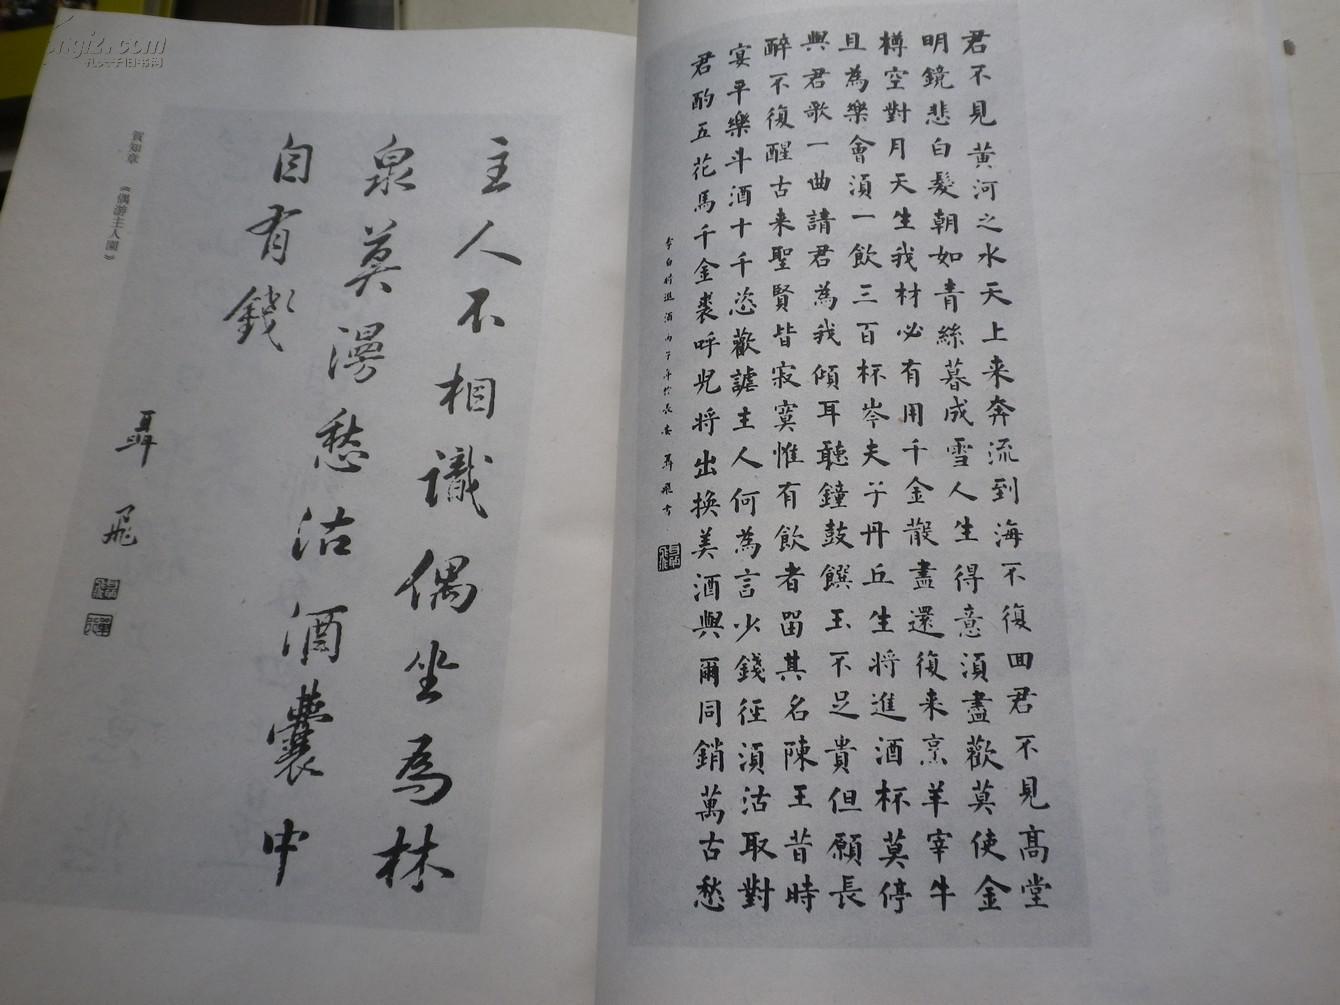 君不見黄河之水天上来奔流到海不復回君不見高堂
明鏡悲白髮朝如青絲暮成雪人生得意須盡歡莫使金
樽空對月天生我材必有用千金散盡還復来烹羊宰牛
且為樂會須一飲三百杯岑夫子丹丘生將進酒杯莫停
與君歌一曲請君為我傾耳聽鐘鼓饌玉不足貴但願長
醉不復醒古来聖賢皆寂寞惟有飲者留其名陳王昔時
宴平樂斗酒十千恣歡謔主人何為言少錢徑須沽取對
君酌五花馬千金裘呼兒將出換美酒與爾同銷萬古愁
李白將進酒丙子年於長安聶飛書
主人不相識偶坐為林
泉莫漫愁沽酒囊中
自有錢
聶飛
賀知章 《偶游主人園》
孔夫子旧书网